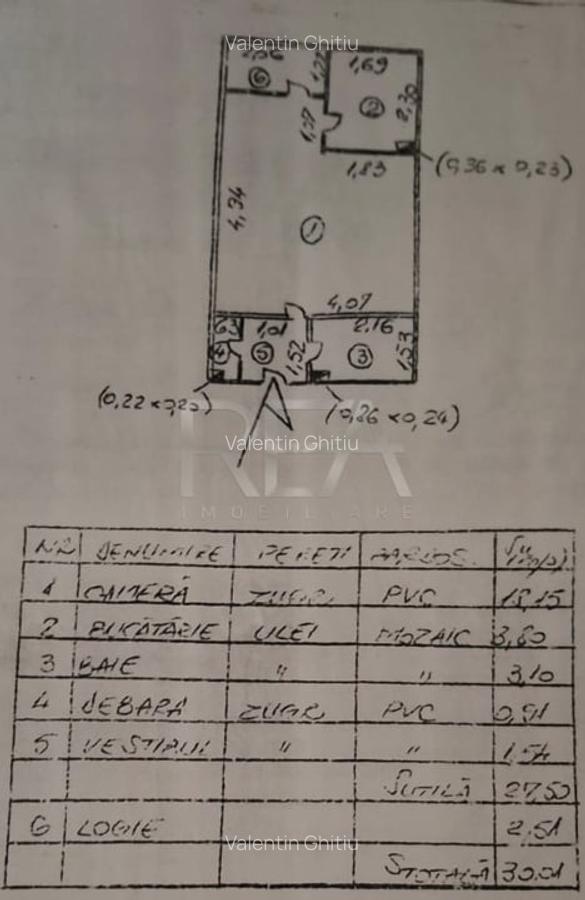 Valentin Ghitiu
1,22
1,69
6
2
2,30
1,07
1,83
(0,36 x 0,23)
4,34
1
4,07
63
1,01
2,16
4
5
1,52
3
1,53
(0,22 x 0,20)
(0,26 x 0,24)
Valentin Ghitiu
REA
IMOBILIARE
NR DENUMIRE PERETI PARDOS.
1 CAMERĂ ZUGR. PVC 18,15
2 BUCĂTĂRIE ULEI MOZAIC 3,80
3 BAIE " " 3,10
4 DEBARA ZUGR. PVC 0,91
5 VESTIBUL " " 1,54
SUTILĂ 27,50
6 LOGIE 2,51
Valentin Ghitiu
STOTALĂ 30,01